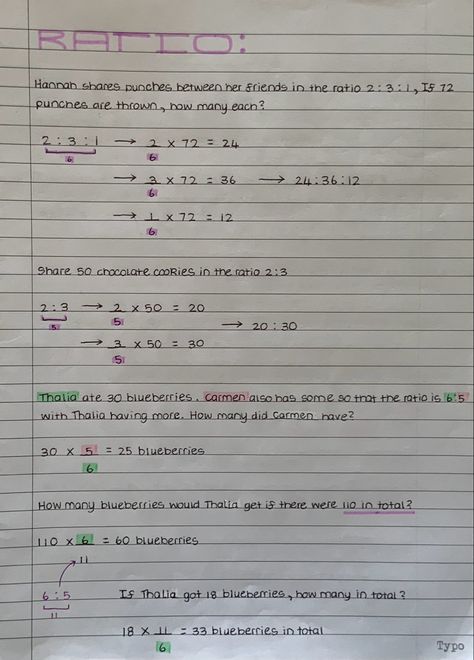 RATIO:
Hannah shares punches between her friends in the ratio 2:3:1, If 72
punches are thrown, how many each?
2 : 3 : 1 → 2/6 × 72 = 24
6
→ 3/6 × 72 = 36 → 24:36:12
→ 1/6 × 72 = 12
Share 50 chocolate cookies in the ratio 2:3
2 : 3 → 2/5 × 50 = 20
5
→ 20 : 30
→ 3/5 × 50 = 30
Thalia ate 30 blueberries. Carmen also has some so that the ratio is 6:5
with Thalia having more. How many did Carmen have?
30 × 5/6 = 25 blueberries
How many blueberries would Thalia get if there were 110 in total?
110 × 6/11 = 60 blueberries
6 : 5 If Thalia got 18 blueberries, how many in total?
11
18 × 11/6 = 33 blueberries in total
Typo